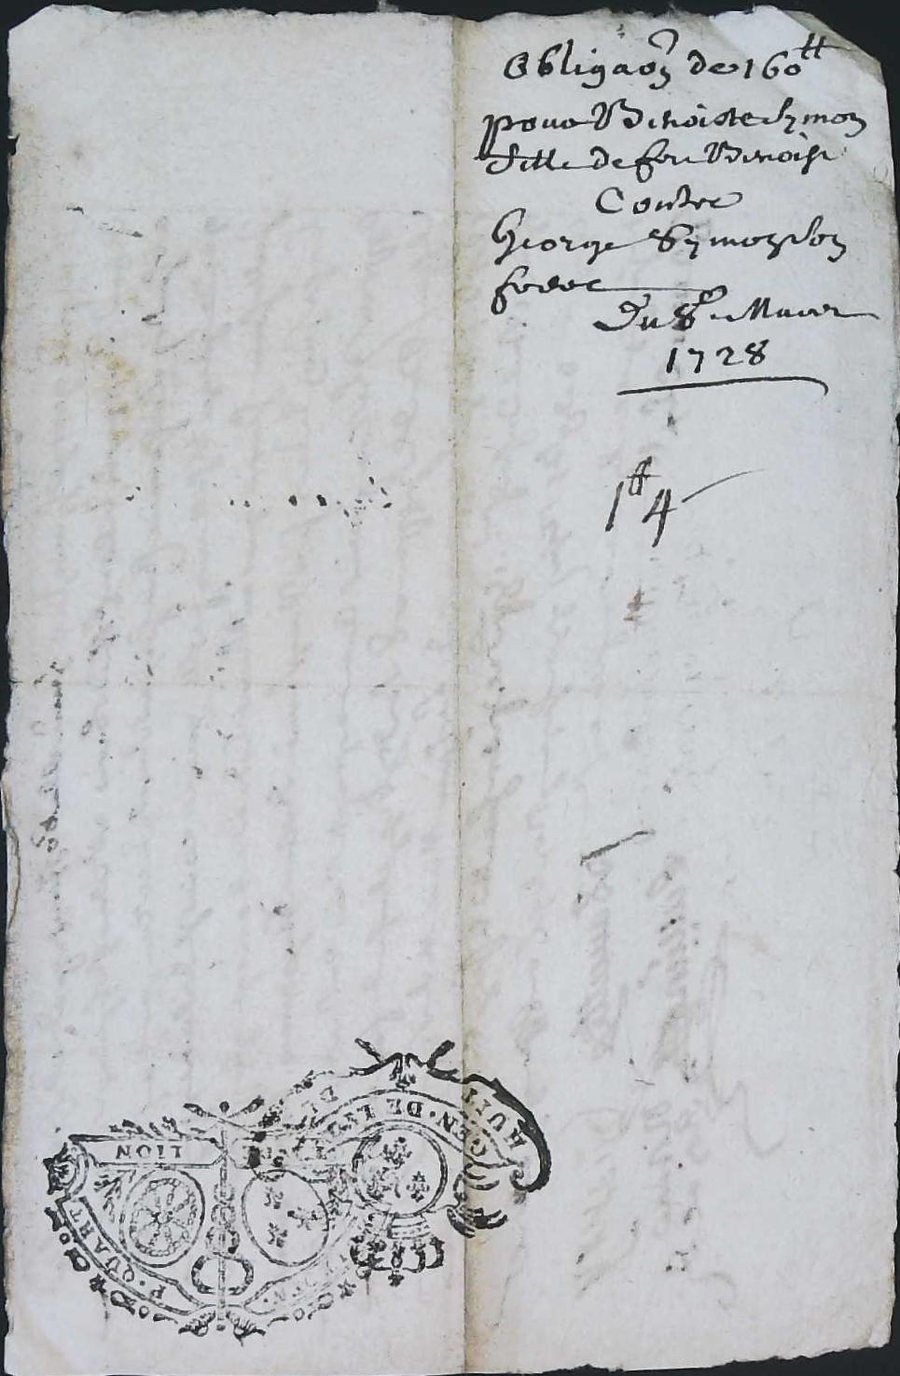 Obligaon de 160 ₶
pour Benoiste Symon
fille de feu Benoist
Contre
George Symon son
frere
Du 8e Mars
1728
1 ₶ 4
HUIT
GEN. DE LYO
LION
P. QUART